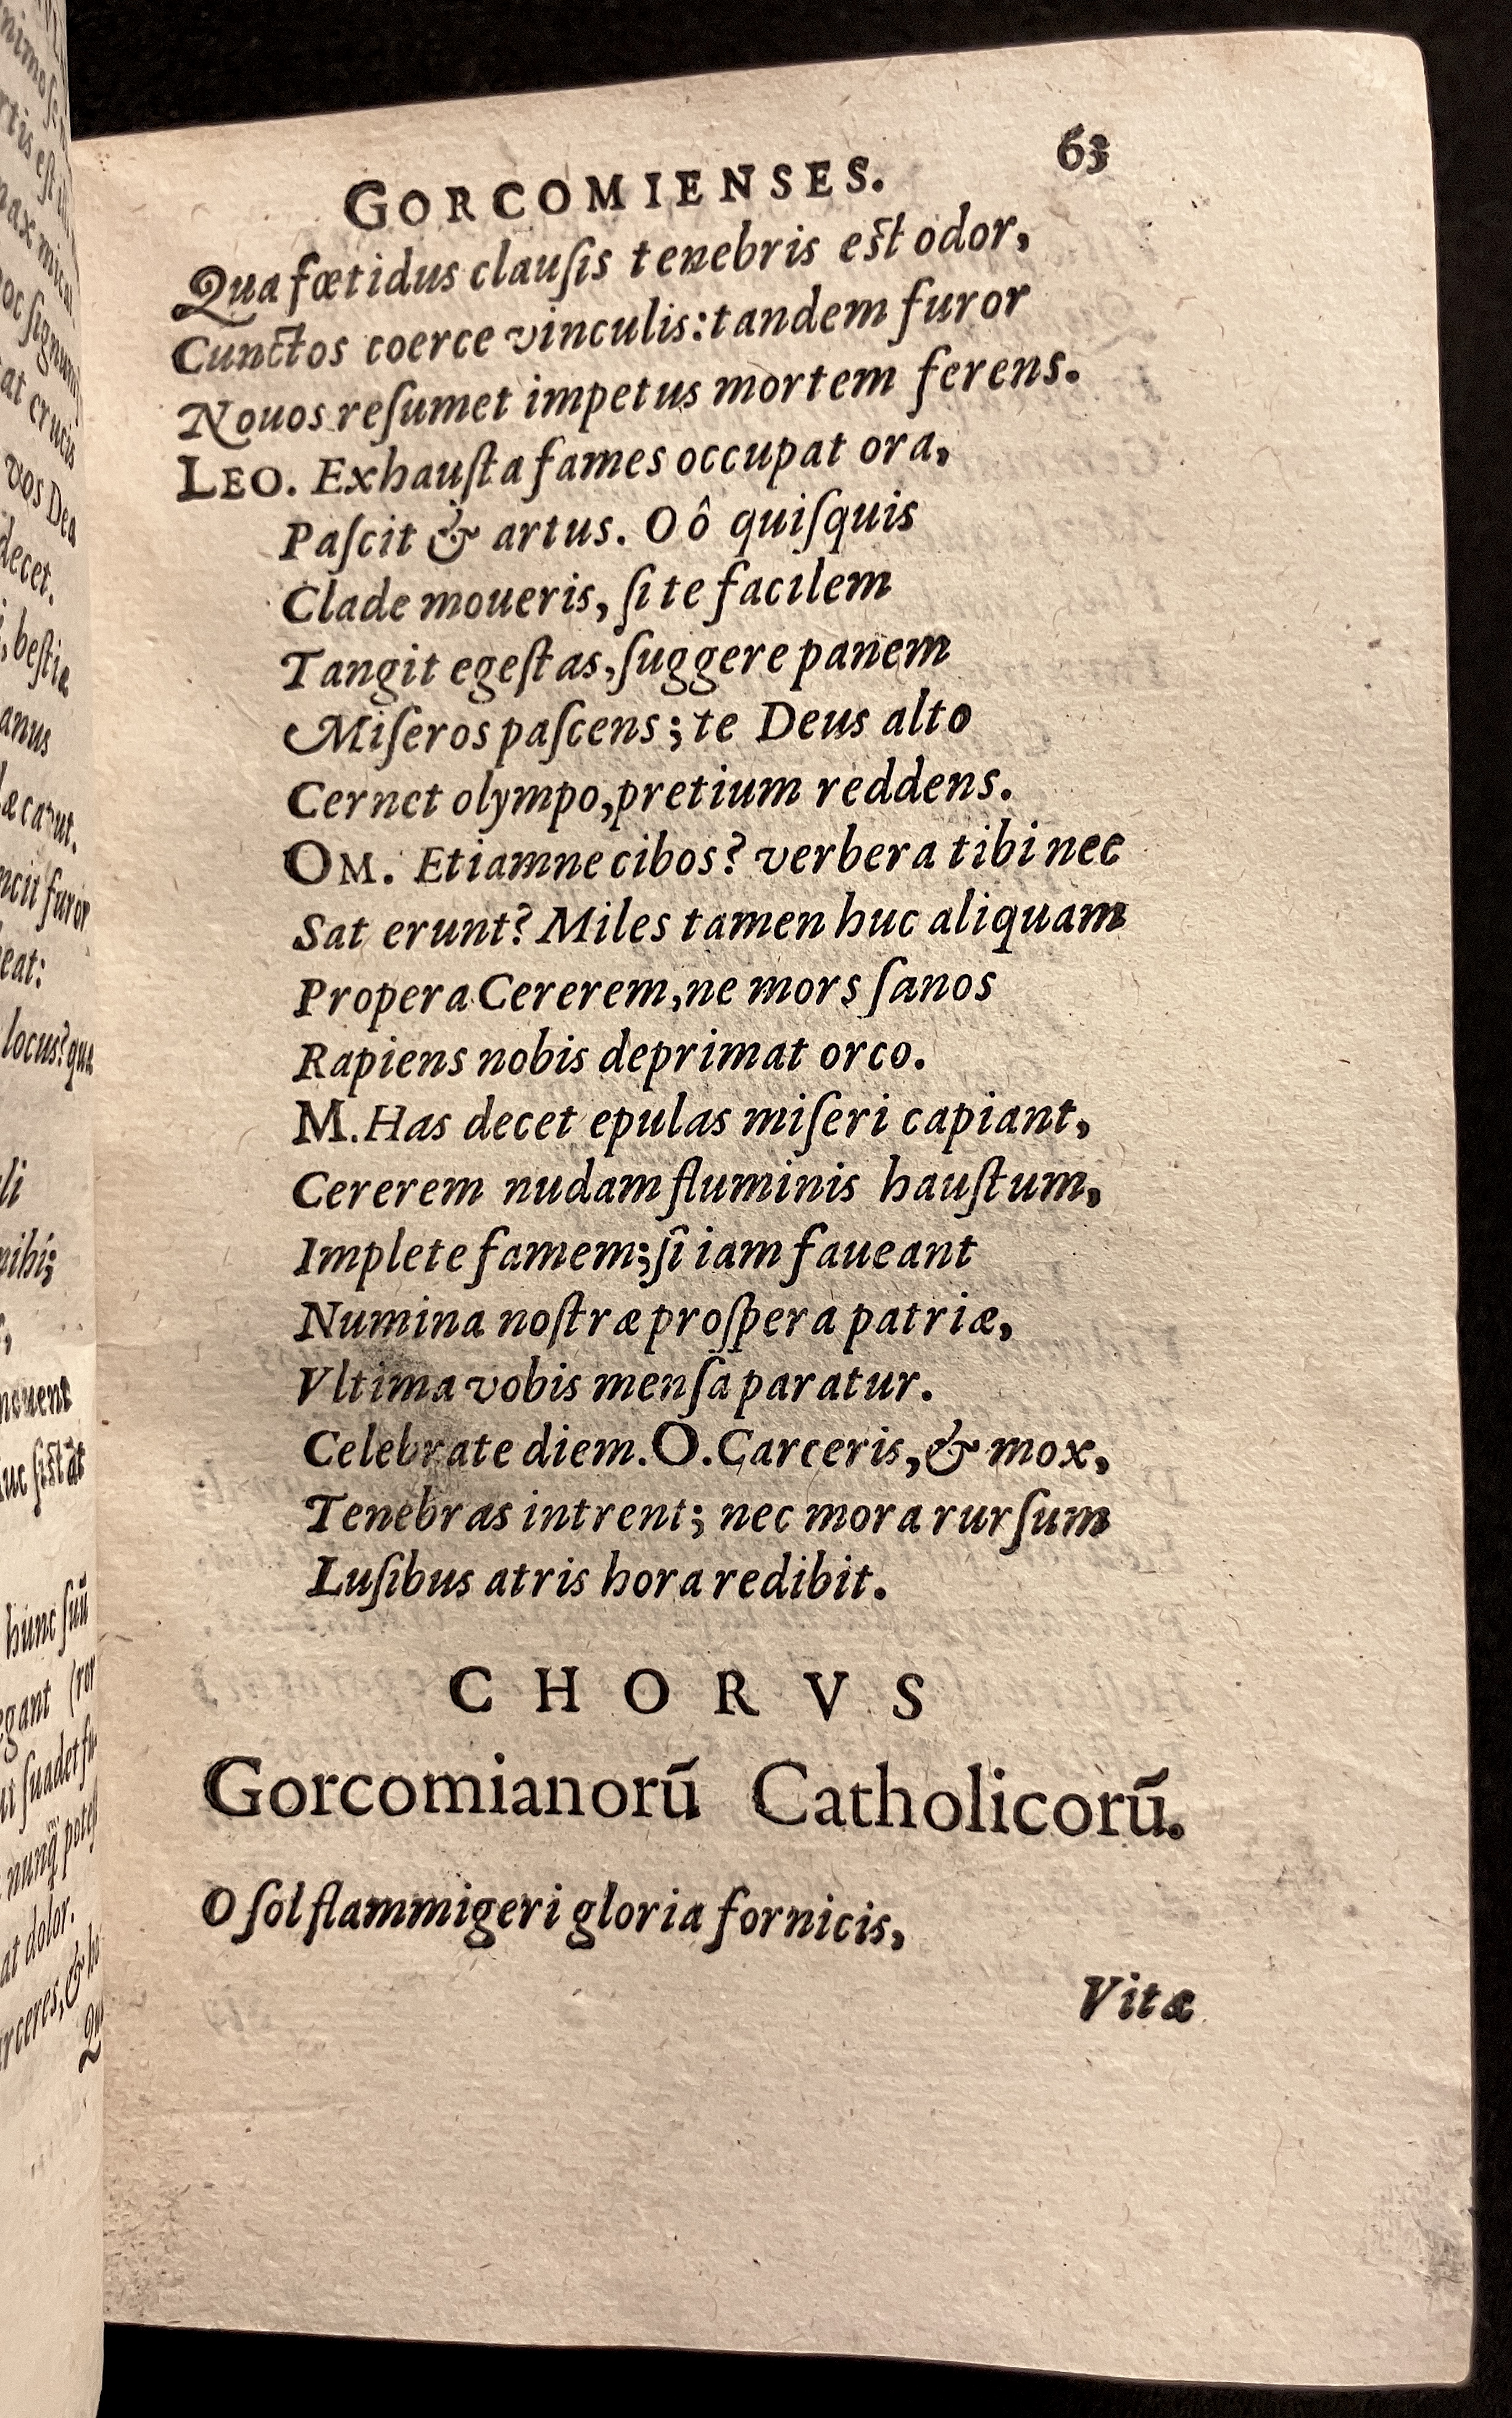 GORCOMIENSES. 63
Qua fœtidus clauſis tenebris eſt odor,
Cunctos coerce vinculis: tandem furor
Nouos reſumet impetus mortem ferens.
LEO. Exhauſta fames occupat ora,
Paſcit & artus. O ô quiſquis
Clade moueris, ſi te facilem
Tangit egeſtas, ſuggere panem
Miſeros paſcens; te Deus alto
Cernet olympo, pretium reddens.
OM. Etiamne cibos? verbera tibi nec
Sat erunt? Miles tamen huc aliquam
Propera Cererem, ne mors ſanos
Rapiens nobis deprimat orco.
M. Has decet epulas miſeri capiant,
Cererem nudam fluminis hauſtum,
Implete famem; ſi iam faueant
Numina noſtræ proſpera patriæ,
Vltima vobis menſa paratur.
Celebrate diem. O. Carceris, & mox,
Tenebras intrent; nec mora rurſum
Luſibus atris hora redibit.
CHORVS
Gorcomianorū Catholicorū.
O ſol flammigeri gloria fornicis,
Vitæ